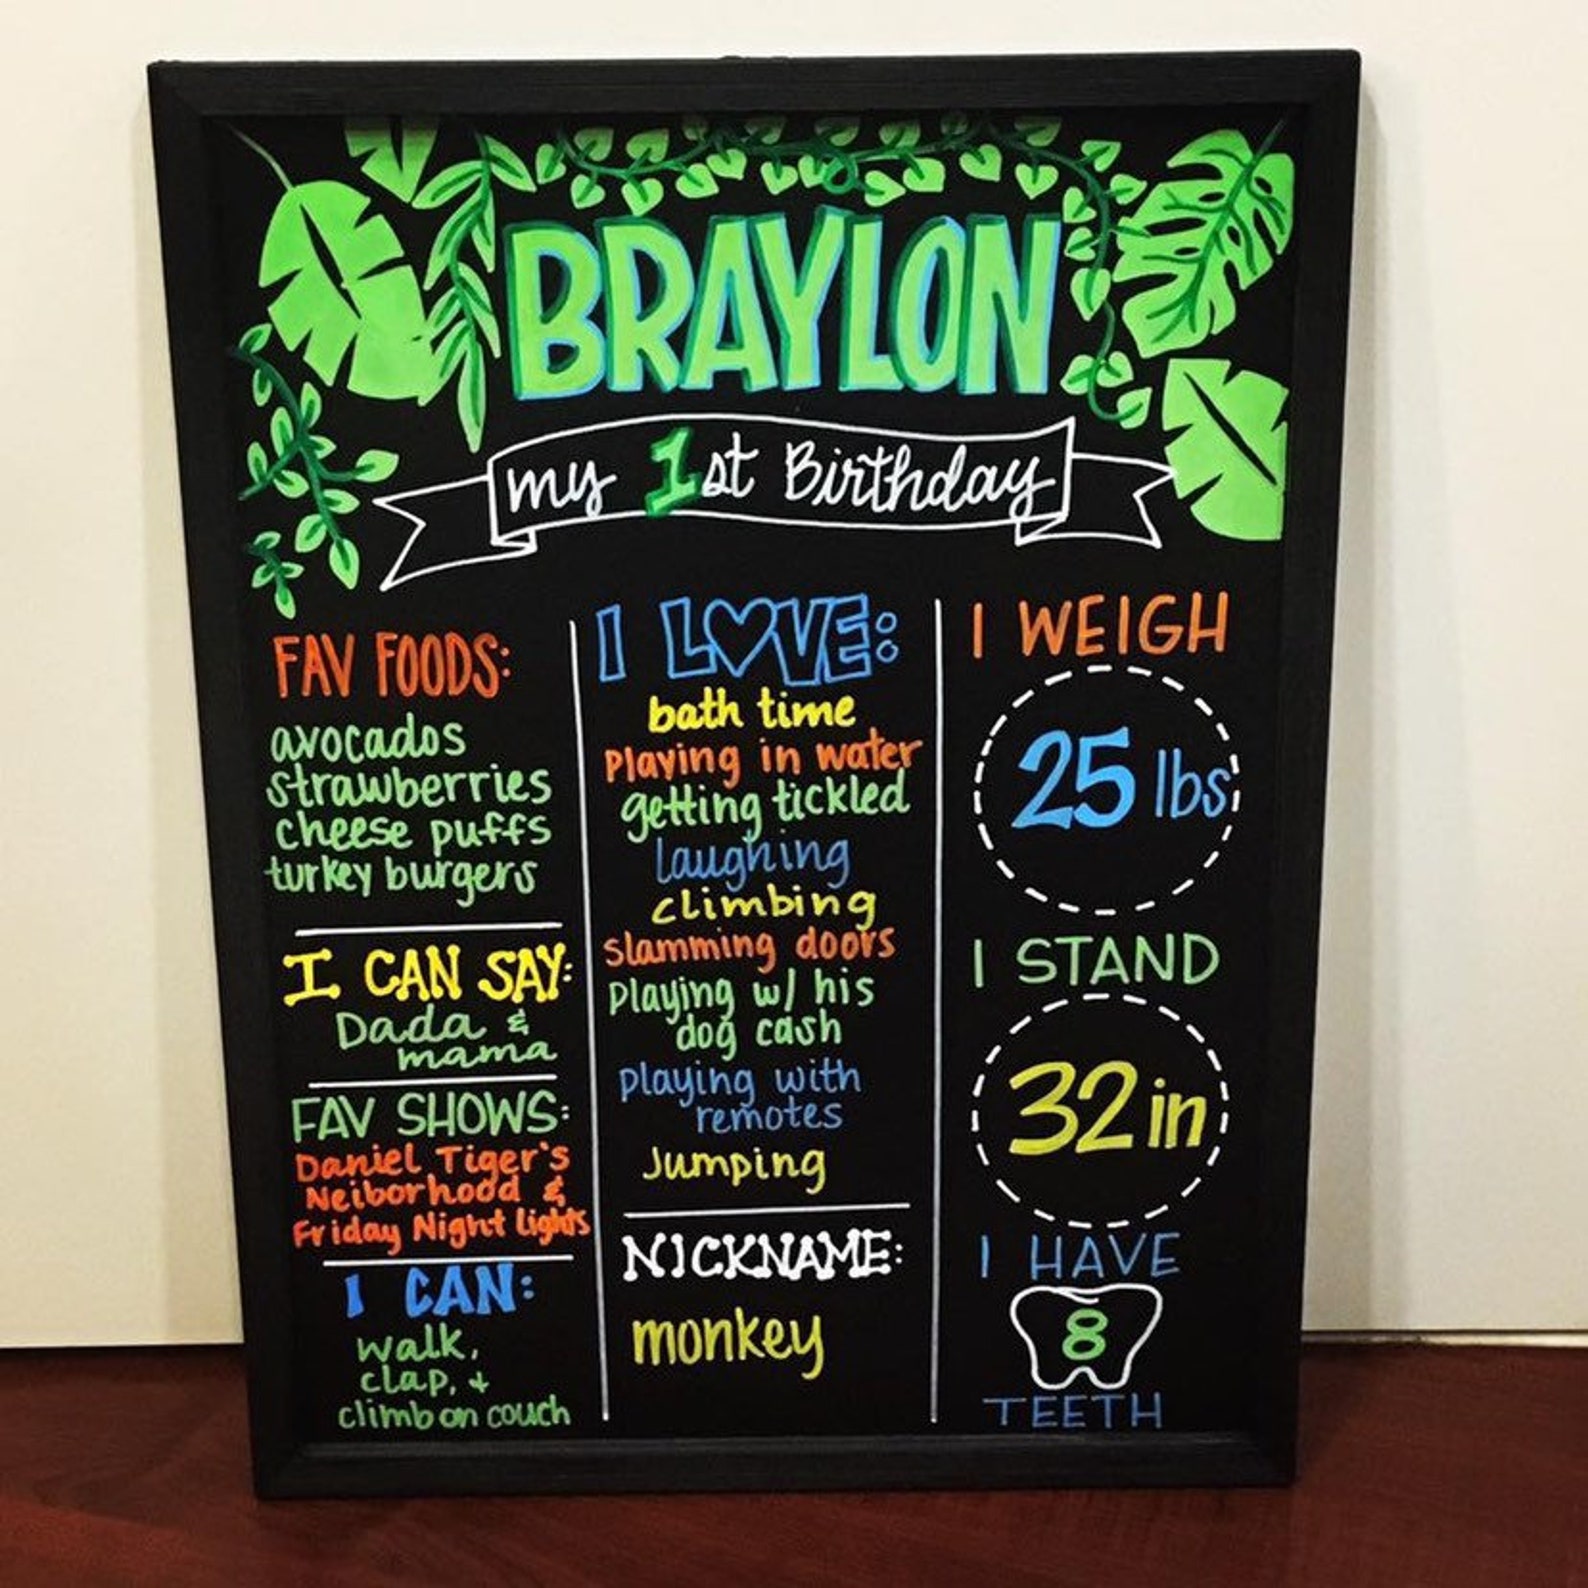 BRAYLON
my 1st Birthday
FAV FOODS:
avocados
strawberries
cheese puffs
turkey burgers
I CAN SAY:
Dada &
mama
FAV SHOWS:
Daniel Tiger's
Neiborhood &
Friday Night lights
I CAN:
walk,
clap, +
climb on couch
I LOVE:
bath time
playing in water
getting tickled
laughing
climbing
slamming doors
playing w/ his
dog cash
playing with
remotes
Jumping
NICKNAME:
monkey
I WEIGH
25 lbs
I STAND
32 in
I HAVE
8
TEETH